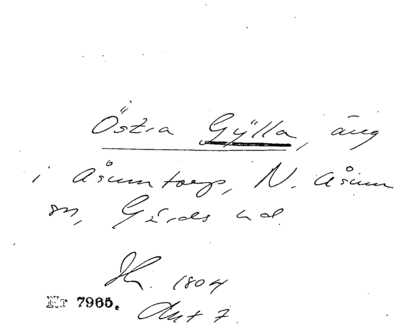 Östra Gÿlla, äng
i Åsumtorp, N. Åsum
sn, Gärds hd.
1804
Kr 7965.
Akt 7.